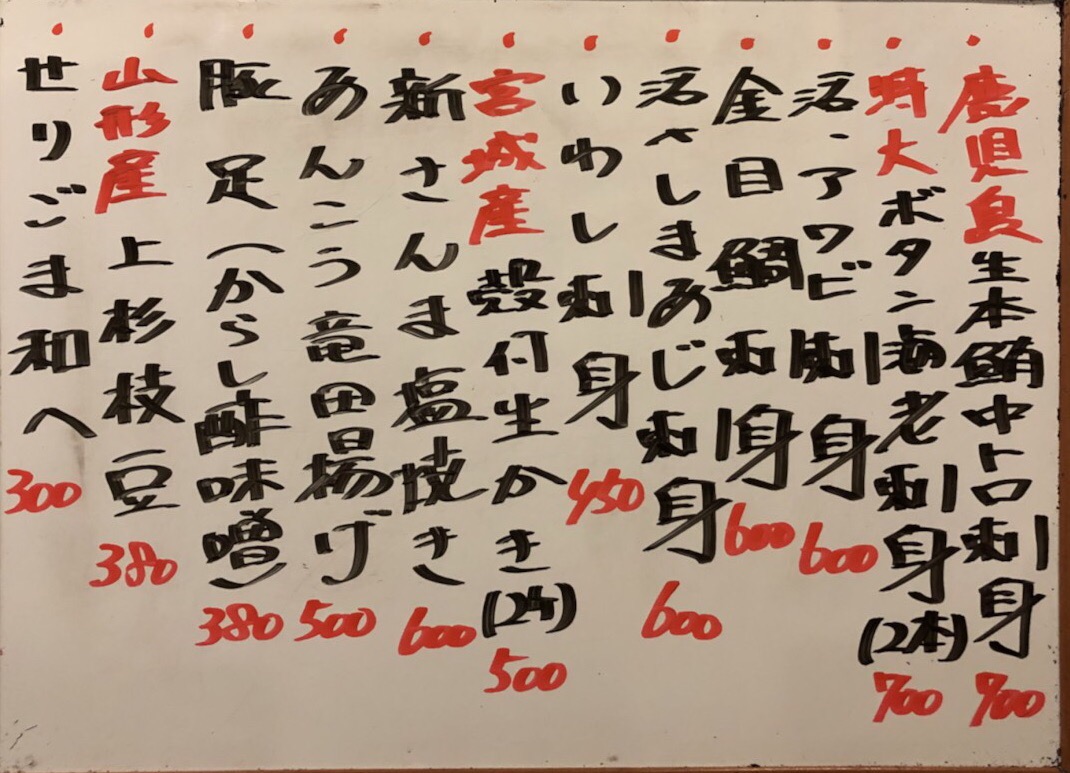 鹿児島生本鮪中トロ刺身 700
特大ボタン海老刺身(2本) 700
活、アワビ刺身 600
金目鯛刺身 600
活〆しまあじ刺身 600
いわし刺身 450
宮城産殻付生かき(2ケ) 500
新さんま塩焼き 600
あんこう竜田揚げ 500
豚足(からし酢味噌) 380
山形産上杉枝豆 380
せりごま和へ 300